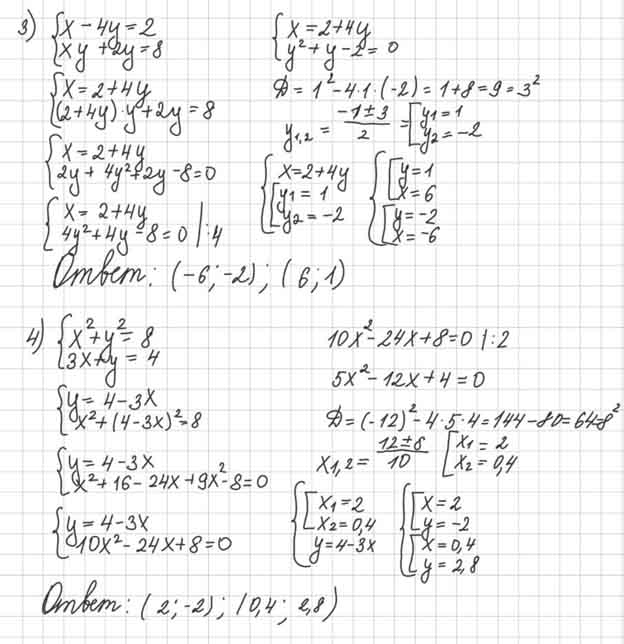 3) {x - 4y = 2
{xy + 2y = 8
{x = 2+4y
{(2+4y)·y+2y=8
{x = 2+4y
{2y+4y²+2y-8=0
{x = 2+4y
{4y²+4y-8=0 |:4
{x = 2+4y
{y²+y-2=0
D = 1²-4·1·(-2) = 1+8 = 9 = 3²
y₁,₂ = (-1±3)/2 = [y₁=1
[y₂=-2
{x=2+4y
{[y₁=1
[y₂=-2
{[y=1
[x=6
{[y=-2
[x=-6
Ответ: (-6;-2); (6;1)
4) {x²+y²=8
{3x+y=4
{y=4-3x
{x²+(4-3x)²=8
{y=4-3x
{x²+16-24x+9x²-8=0
{y=4-3x
{10x²-24x+8=0
10x²-24x+8=0 |:2
5x²-12x+4=0
D=(-12)²-4·5·4=144-80=64=8²
x₁,₂= (12±8)/10 [x₁=2
[x₂=0,4
{[x₁=2
[x₂=0,4
{y=4-3x
{[x=2
[y=-2
{[x=0,4
[y=2,8
Ответ: (2;-2); (0,4; 2,8)